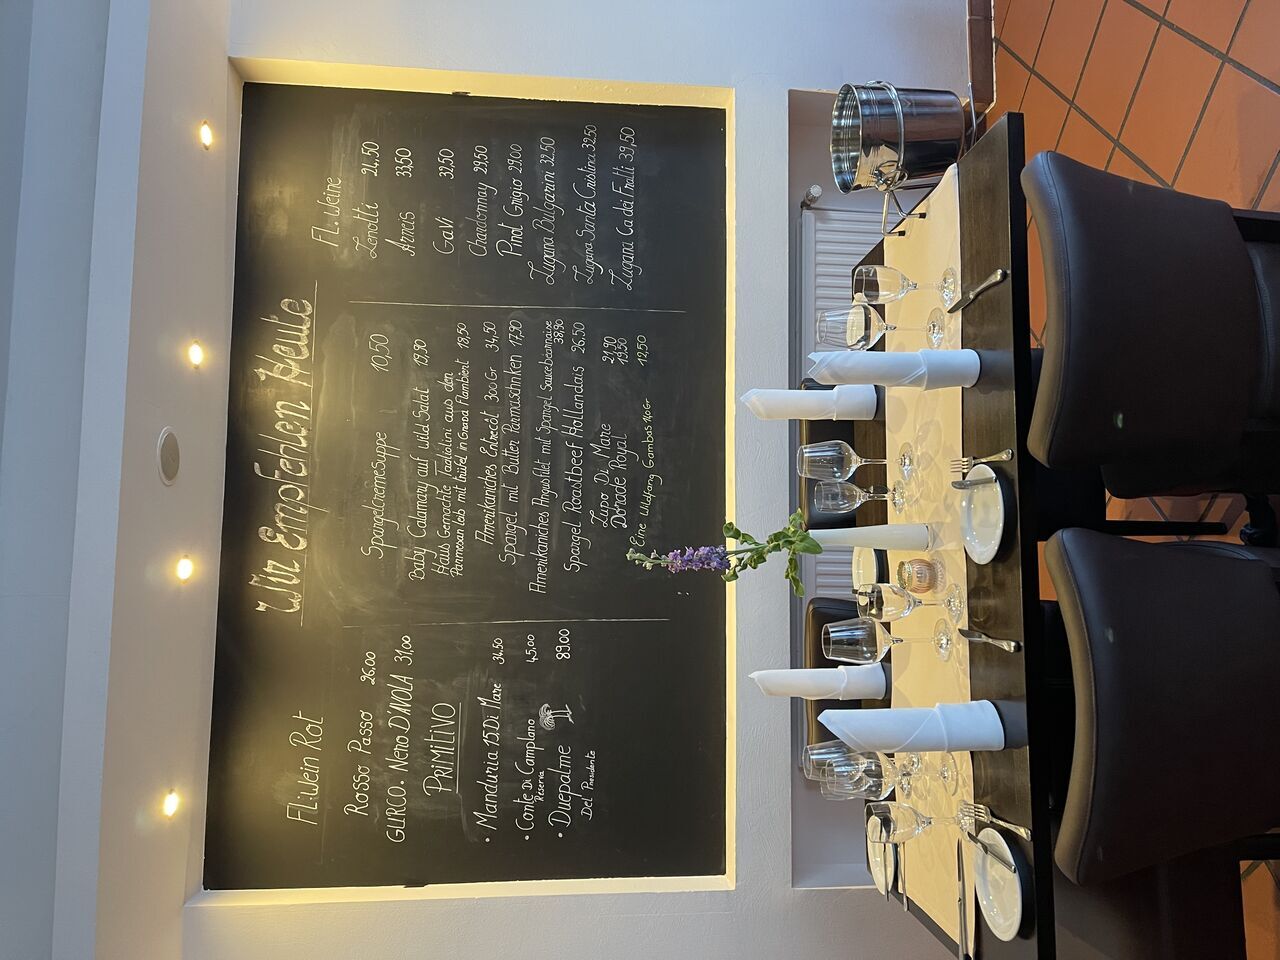 Wir Empfehlen Heute
Fl: Wein Rot
Rosso Passo 26.00
GURCO. NERO D'AVOLA 31,00
PRIMITIVO
• Manduria 15 Di Mare 34.50
• Conte Di Camplano 45.00
Reserva
• Duepalme 89.00
Del Presidente
Spargelcremesuppe 10,50
Baby Calamary auf wild Salat 19,90
Haus Gemachte Tagliolini aus den
Parmesan leib mit trüfel in Grana Flambiert 18,50
Amerikaniches Entrecot 300Gr 34,50
Spargel mit Butter Parmischnken 17,90
Amerikaniches Angusfilet mit Spargel Saucebearnaise
38,90
Spargel Roastbeef Hollandais 26.50
Zupo Di Mare 21.90
Dorade Royal 19.50
Eine Wildfang Gambas 140Gr 12,50
Fl: Weine
Zenotti 24,50
Arneis 33,50
GaVi 32,50
Chardonnay 29,50
Pinot Grigio 29.00
Lugana Bulgarini 32.50
Lugana Santa Cristina 32.50
Lugana Ca dei Fratti 39,50